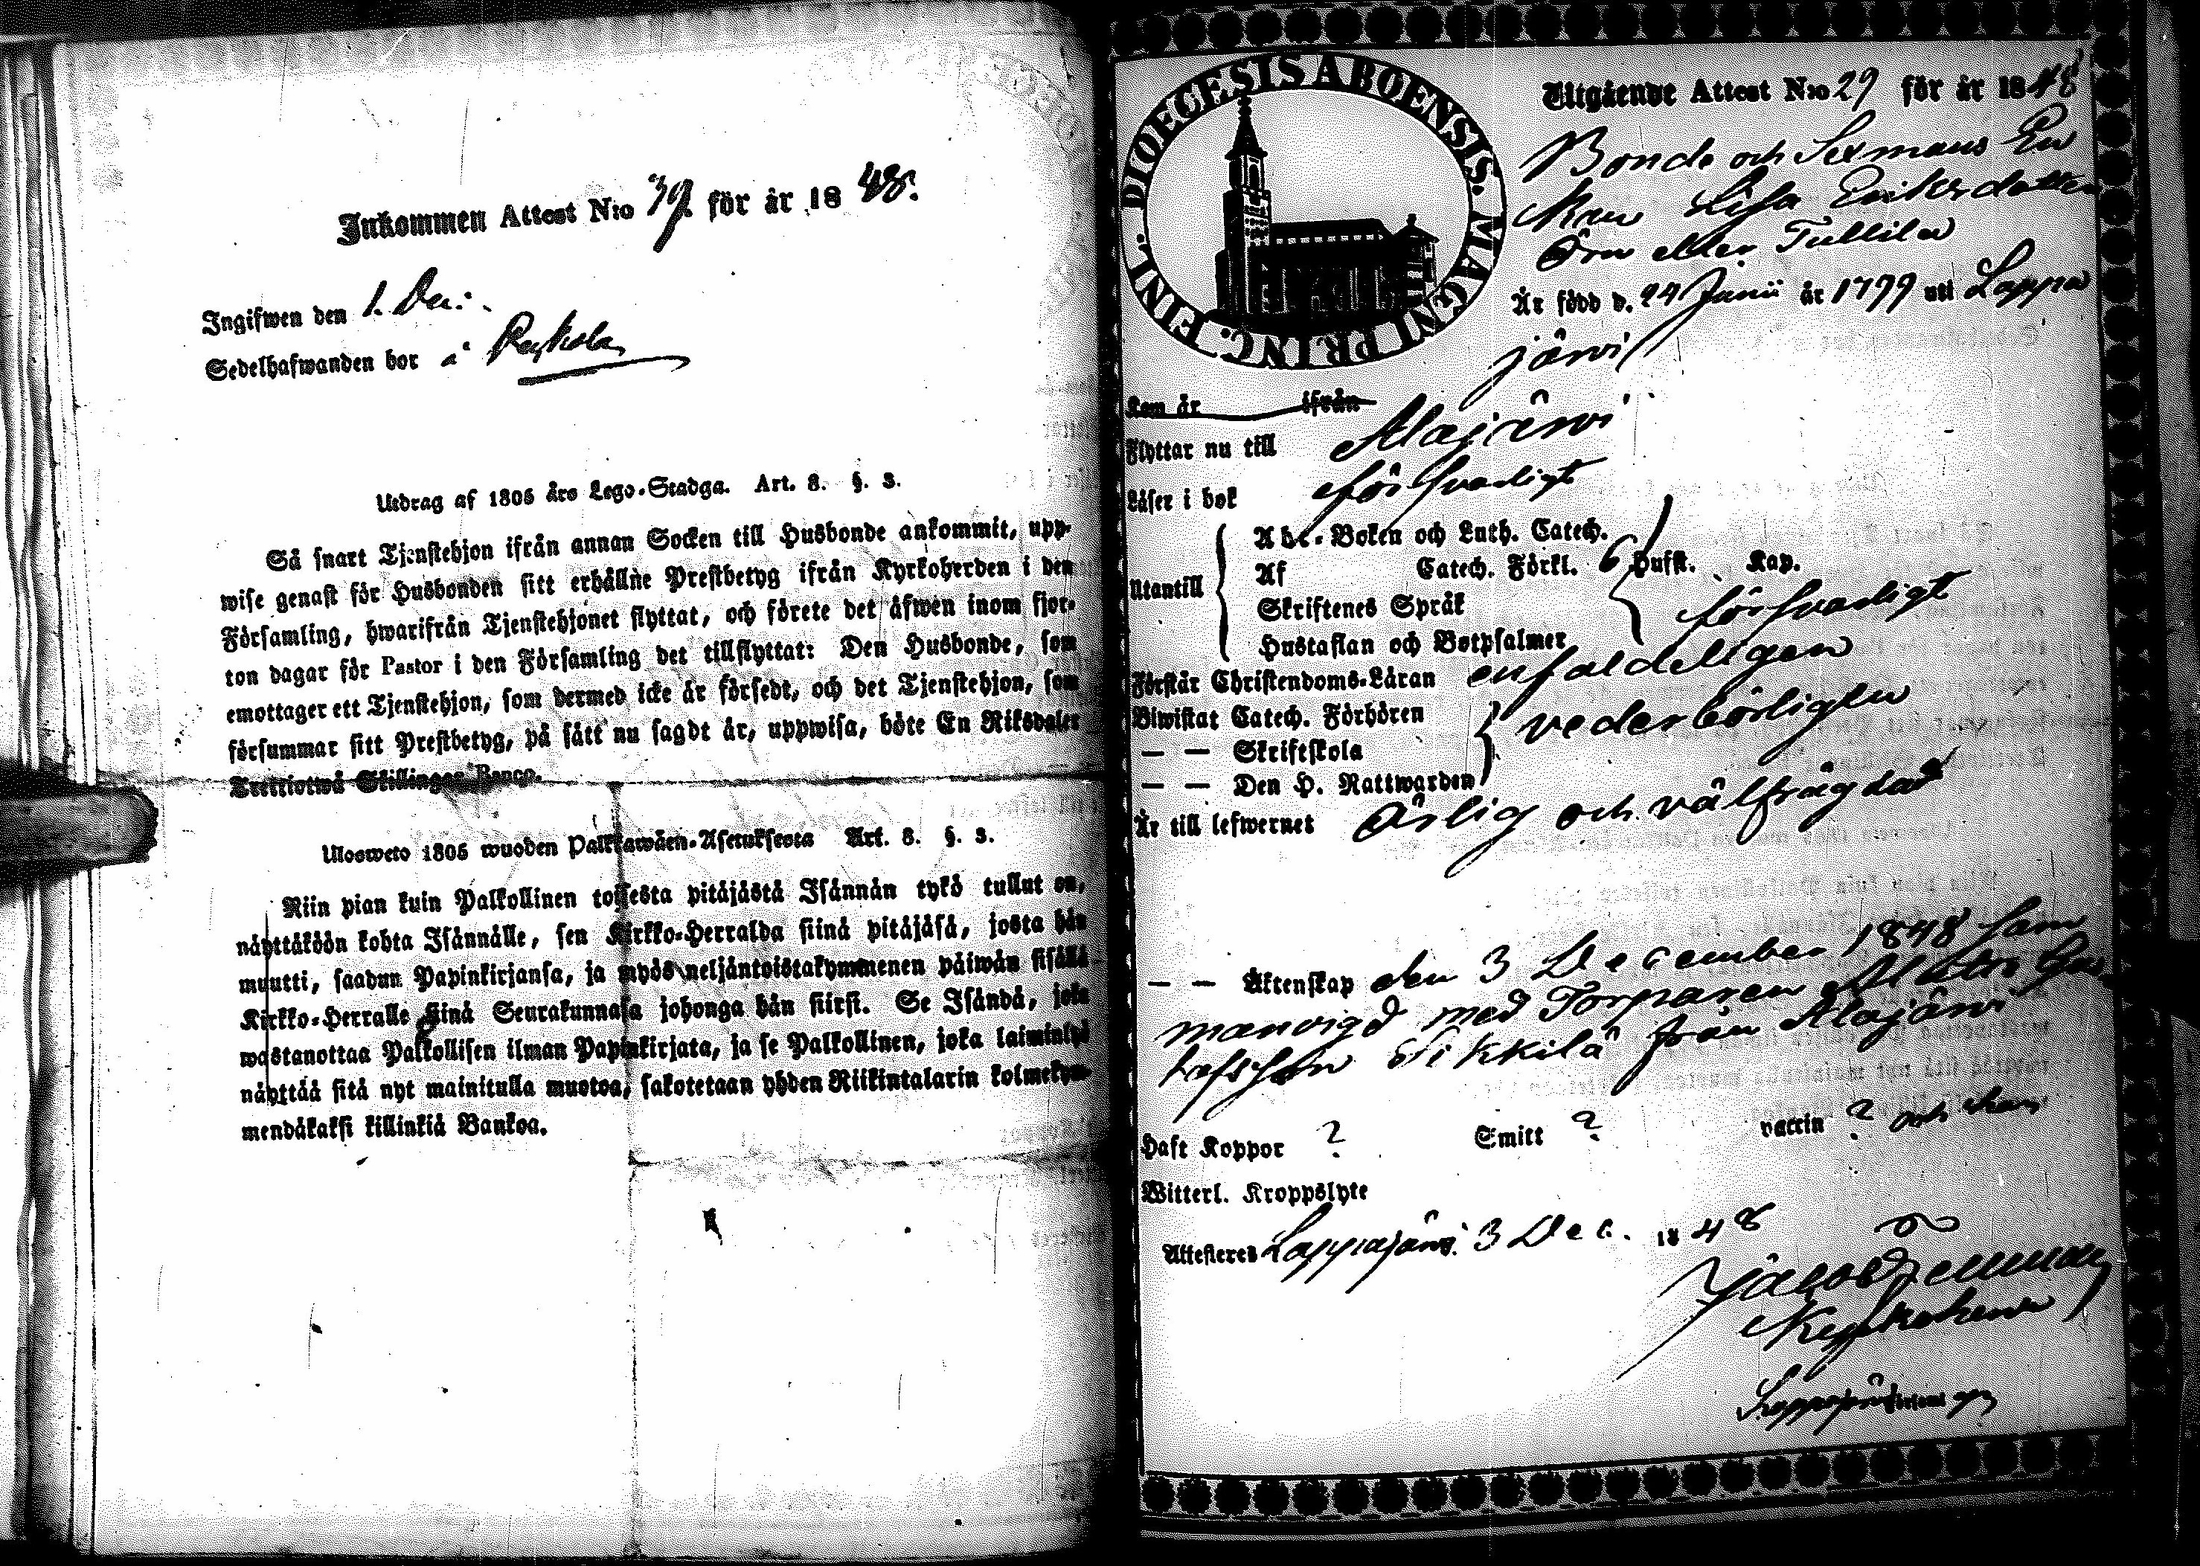 Inkommen Attest N:o 39 för år 1848.
Ingifwen den 1. Dec:
Sedelhafwanden bor å
Utdrag af 1805 års Lego-Stadga. Art. 8. §. 3.
Så snart Tjenstehjon ifrån annan Socken till Husbonde ankommit, upp-
wise genast för Husbonden sitt erhållne Prestbetyg ifrån Kyrkoherden i den
Församling, hwarifrån Tjenstehjonet flyttat, och förete det åfwen inom fjor-
ton dagar för Pastor i den Församling det tillflyttat: Den Husbonde, som
emottager ett Tjenstehjon, som dermed icke år försedt, och det Tjenstehjon, som
försummar sitt Prestbetyg, på sått nu sagdt år, uppwisa, böte En Riksdaler
Trettiotwå Skillingar Banco.
Ulosweto 1805 wuoden Palkkawåen-Asetuksesta Art. 8. §. 3.
Niin pian kuin Palkollinen toisesta pitåjåstå Isånnån tykö tullut on,
nåyttåköön kohta Isånnålle, sen Kirkko-Herralda siinå pitåjåså, josta hån
muutti, saadun Papinkirjansa, ja myös neljåntoistakymmenen påiwån sisållå
Kirkko-Herralle siinå Seurakunnasa johonga hån siirsi. Se Isåndå, joka
wastanottaa Palkollisen ilman Papinkirjata, ja se Palkollinen, joka laiminlyö
nåyttåå sitå nyt mainitulla muotoa, sakotetaan yhden Riikintalarin kolmekym-
mendåkaksi killinkiå Bankoa.
DIOECESIS ABOENSIS. MAGNI PRINC. FINL.
Utgående Attest N:o 29 för år 1848
Bonde och Sexmans En
kan Lisa Eriksdotter
Örn eller Tullila
År född d. 24 Junii år 1799 uti Lappa
järvi
Kom år ifrån
Flyttar nu till Alajärvi
Låser i bok försvarligt
Utantill
Abc-Boken och Luth. Catech.
Af Catech. Förkl. 6 Hufst. Kap.
Skriftenes Språk försvarligt
Hustaflan och Botpsalmer
Förstår Christendoms-Låran enfaldeligen
Biwistat Catech. Förhören vederbörligen
— — Skriftskola
— — Den H. Nattwarden
År till lefwernet Ärlig och välfrägdad
— — Åktenskap den 3 December 1848 sam
manvigd med Torparen Gus
tafsson Sikkilä från Alajärvi
Haft Koppor ? Smitt ? vaccin ? och
Witterl. Kroppslyte
Attesteres Lappajärvi 3 Dec. 1848
Jacob
Kyrkoherde